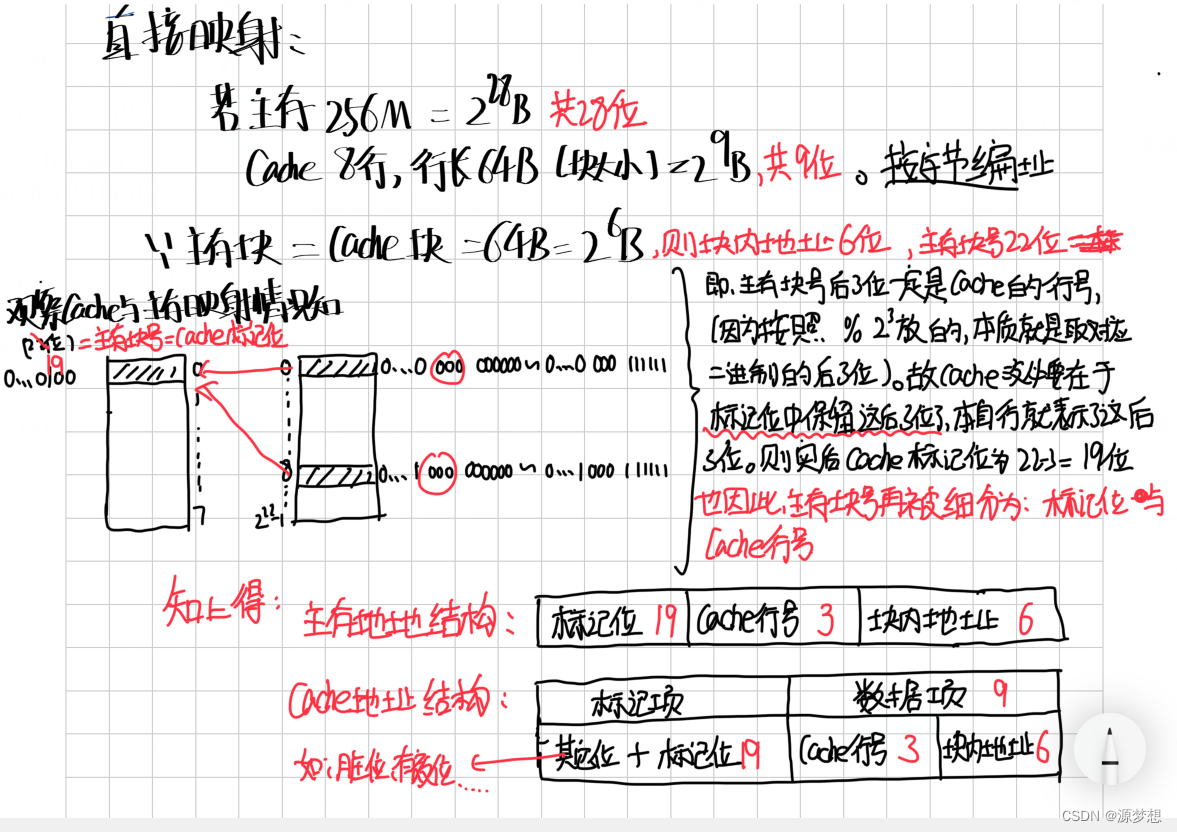 直接映射:
若主存 256M = 2^28B 共28位
Cache 8行, 行长64B [块大小] = 2^9B, 共9位。按字节编址
∵ 主存块 = Cache块 = 64B = 2^6B, 则块内地址6位, 主存块号22位
观察Cache与主存映射情况知
(22位) = 主存块号=Cache标记位
19
0...0100
0
7
0
8
2^22-1
0...0 000 000000 ~ 0...0 000 111111
0...1 000 000000 ~ 0...1 000 11111
即,主存块号后3位一定是Cache的行号,
(因为按照 % 2^3放的,本质就是取对应
二进制的后3位)。故Cache没必要在于
标记位中保留这后3位,本身行就表示了这后
3位。则实后Cache标记位为22-3=19位
也因此,主存块号再被细分为: 标记位与
Cache行号
知上得:
主存地址结构:
标记位 19 Cache行号 3 块内地址 6
Cache地址结构:
标记项 数据项 9
其它位 + 标记位19 Cache行号 3 块内地址6
如:脏位,有效位......
CSDN @源梦想